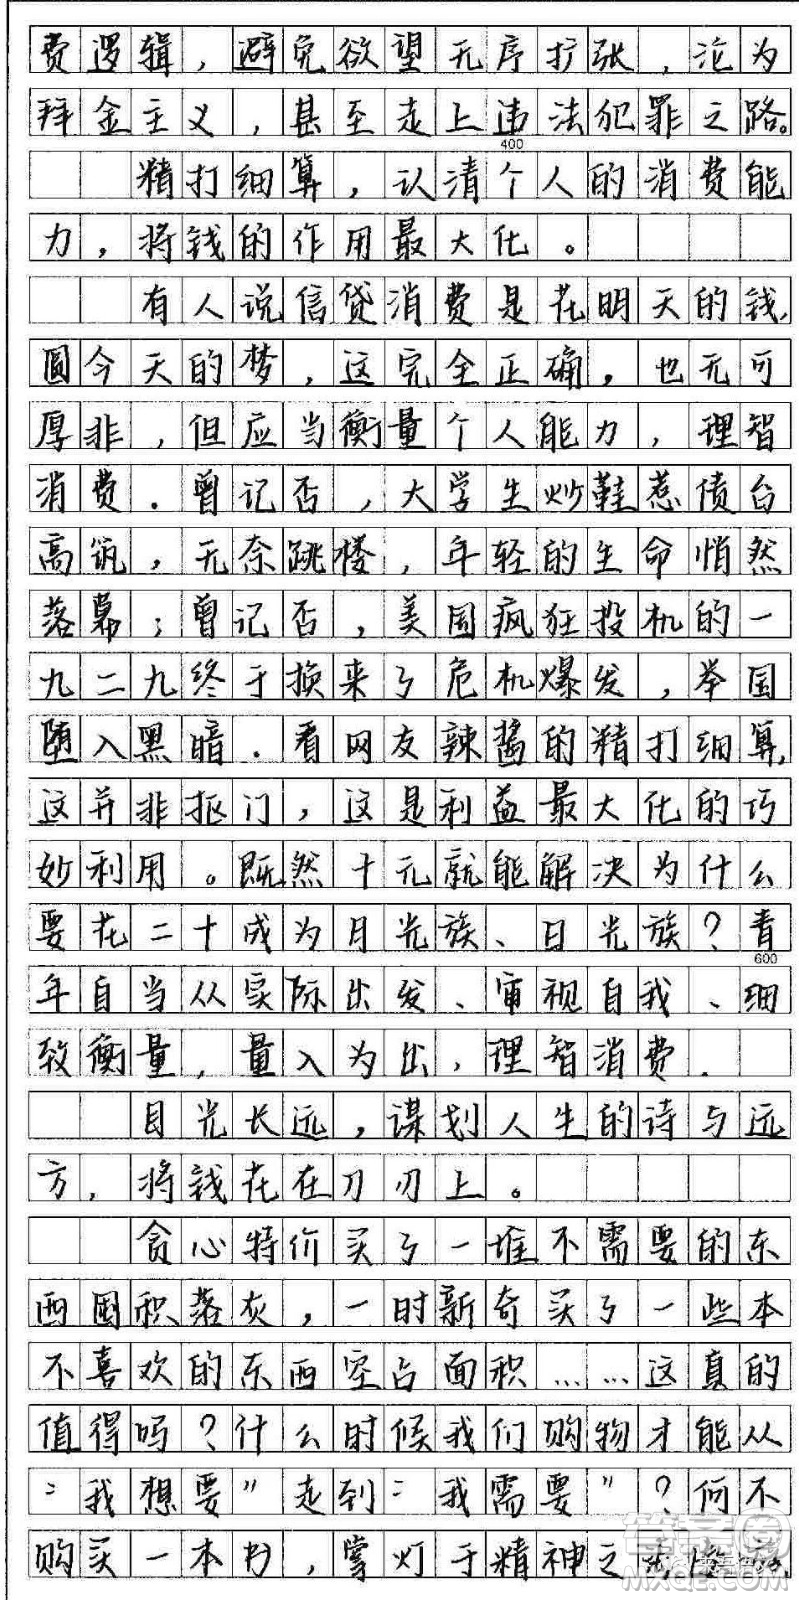 费逻辑，避免欲望无序扩张，沦为
拜金主义，甚至走上违法犯罪之路。
400
精打细算，认清个人的消费能
力，将钱的作用最大化。
有人说信贷消费是花明天的钱，
圆今天的梦，这完全正确，也无可
厚非，但应当衡量个人能力，理智
消费．曾记否，大学生炒鞋惹债台
高筑，无奈跳楼，年轻的生命悄然
落幕；曾记否，美国疯狂投机的一
九二九终于换来了危机爆发，举国
堕入黑暗．看网友辣酱的精打细算，
这并非抠门，这是利益最大化的巧
妙利用。既然十元就能解决为什么
要花二十成为月光族、日光族？青
600
年自当从实际出发、审视自我、细
致衡量，量入为出，理智消费．
目光长远，谋划人生的诗与远
方，将钱花在刀刃上。
贪心特价买了一堆不需要的东
西囤积落灰，一时新奇买了一些本
不喜欢的东西空占面积……这真的
值得吗？什么时候我们购物才能从
“我想要”走到“我需要”？何不
购买一本书，掌灯于精神之
答案圈
MXQE.COM